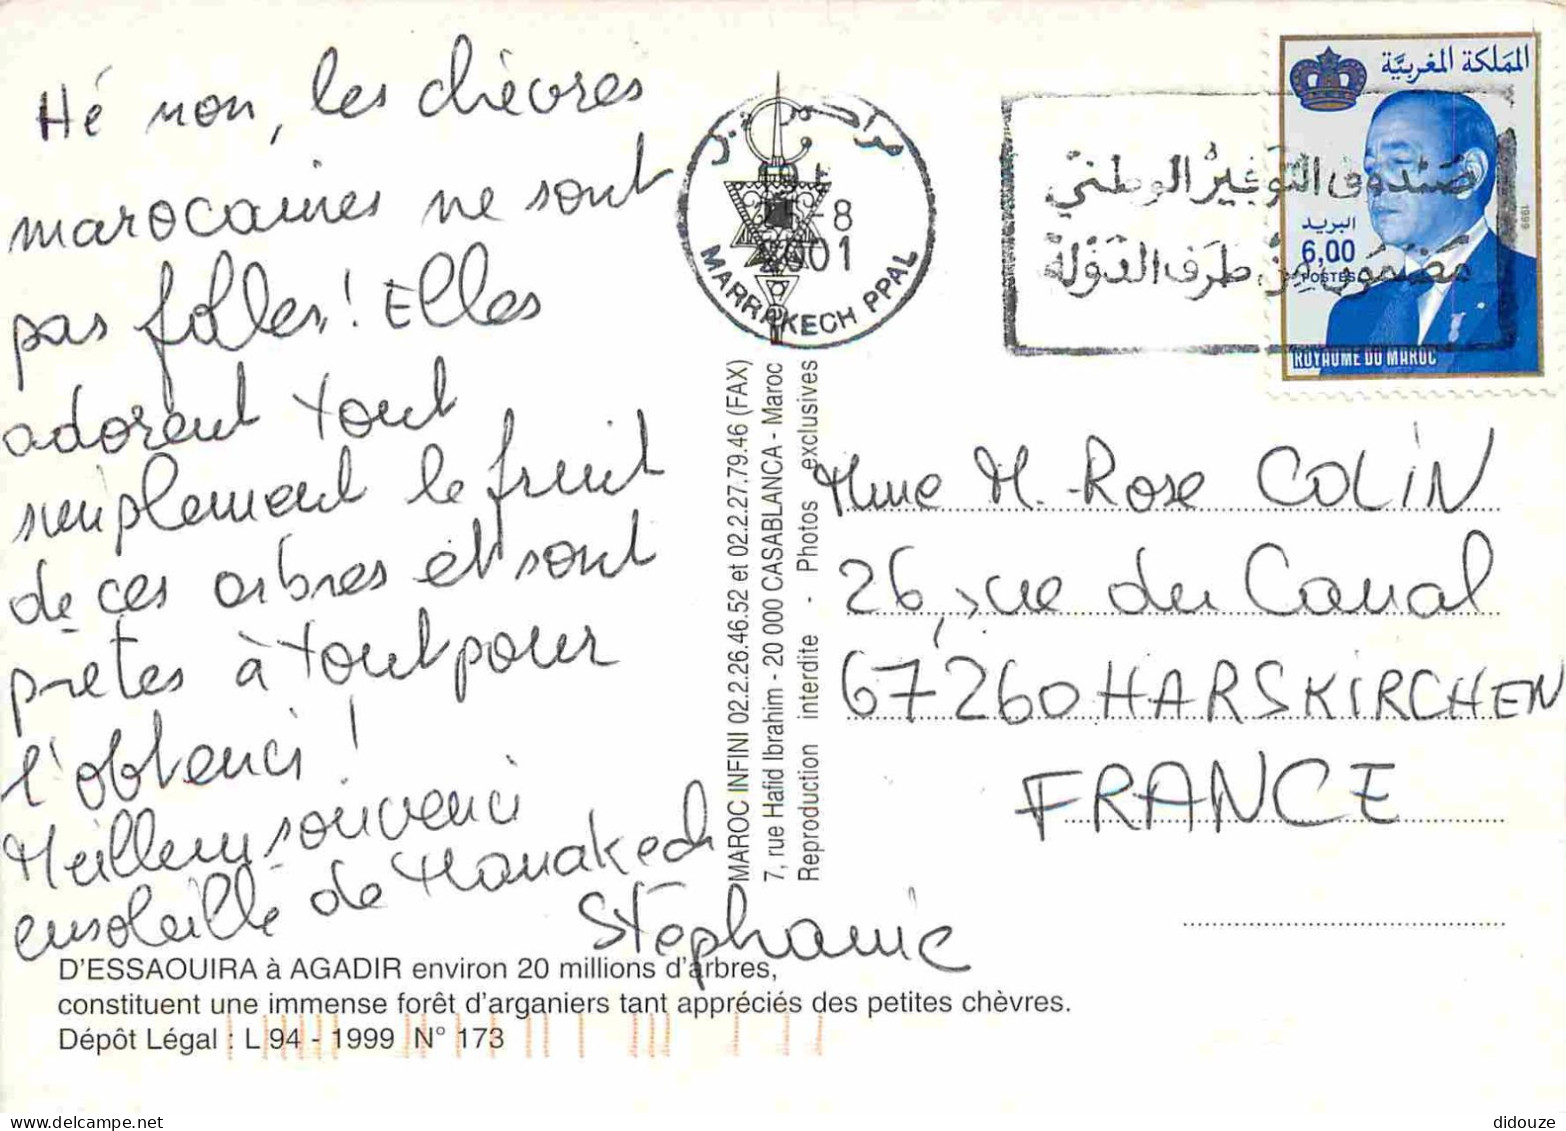 Hé non, les chèvres
marocaines ne sont
pas folles! Elles
adorent tout
simplement le fruit
de ces arbres et sont
prêtes à tout pour
l'obtenir!
Meilleur souvenir
ensoleillé de Marrakech
Stéphanie
D'ESSAOUIRA à AGADIR environ 20 millions d'arbres,
constituent une immense forêt d'arganiers tant appréciés des petites chèvres.
Dépôt Légal : L 94 - 1999 N° 173
MAROC INFINI 02.2.26.46.52 et 02.2.27.79.46 (FAX)
7, rue Hafid Ibrahim - 20 000 CASABLANCA - Maroc
Reproduction interdite - Photos exclusives
-8
2001
MARRAKECH PPAL
صندوق التوفير الوطني
مضمون من طرف الدولة
المملكة المغربية
البريد
6,00
POSTES
1999
ROYAUME DU MAROC
Mme M.-Rose COLIN
26, rue du Canal
67260 HARSKIRCHEN
FRANCE
didouze